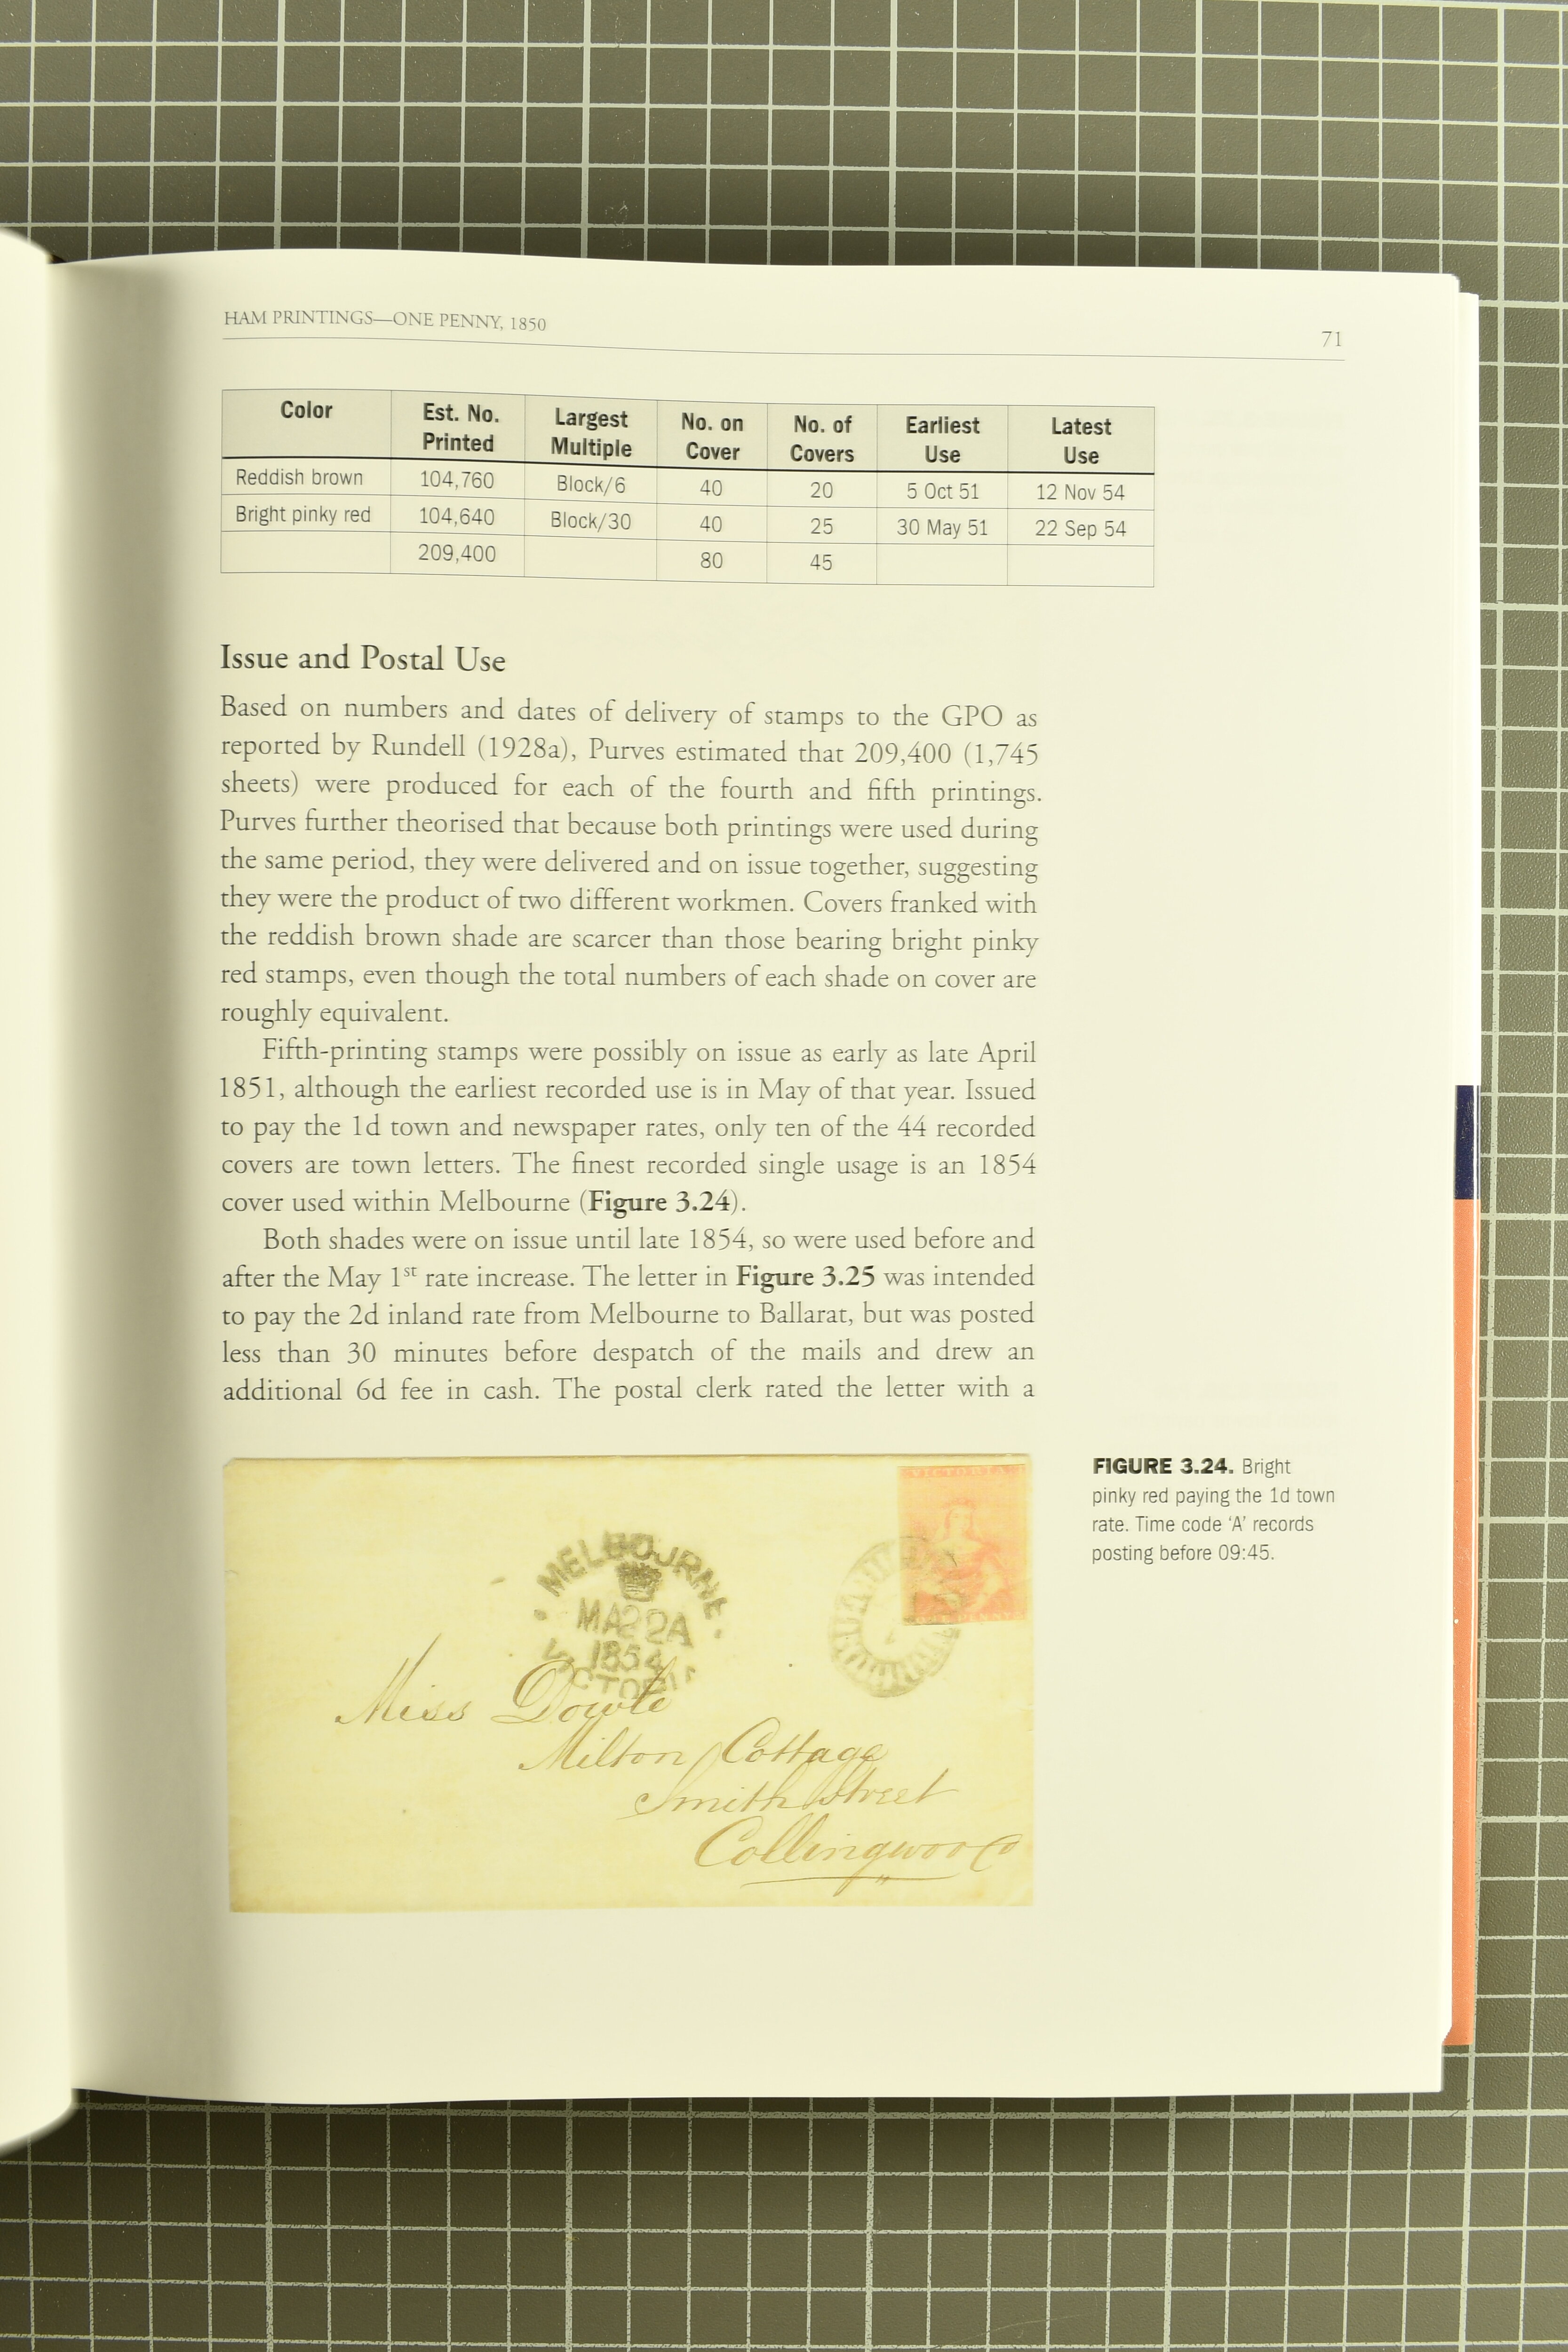 HAM PRINTINGS—ONE PENNY, 1850
71
Color Est. No. Printed Largest Multiple No. on Cover No. of Covers Earliest Use Latest Use
Reddish brown 104,760 Block/6 40 20 5 Oct 51 12 Nov 54
Bright pinky red 104,640 Block/30 40 25 30 May 51 22 Sep 54
209,400 80 45
Issue and Postal Use
Based on numbers and dates of delivery of stamps to the GPO as
reported by Rundell (1928a), Purves estimated that 209,400 (1,745
sheets) were produced for each of the fourth and fifth printings.
Purves further theorised that because both printings were used during
the same period, they were delivered and on issue together, suggesting
they were the product of two different workmen. Covers franked with
the reddish brown shade are scarcer than those bearing bright pinky
red stamps, even though the total numbers of each shade on cover are
roughly equivalent.
Fifth-printing stamps were possibly on issue as early as late April
1851, although the earliest recorded use is in May of that year. Issued
to pay the 1d town and newspaper rates, only ten of the 44 recorded
covers are town letters. The finest recorded single usage is an 1854
cover used within Melbourne (Figure 3.24).
Both shades were on issue until late 1854, so were used before and
after the May 1st rate increase. The letter in Figure 3.25 was intended
to pay the 2d inland rate from Melbourne to Ballarat, but was posted
less than 30 minutes before despatch of the mails and drew an
additional 6d fee in cash. The postal clerk rated the letter with a
MELBOURNE
MA22A
1854
Miss Dowle
Milton Cottage
Smith Street
Collingwood
FIGURE 3.24. Bright
pinky red paying the 1d town
rate. Time code ‘A’ records
posting before 09:45.